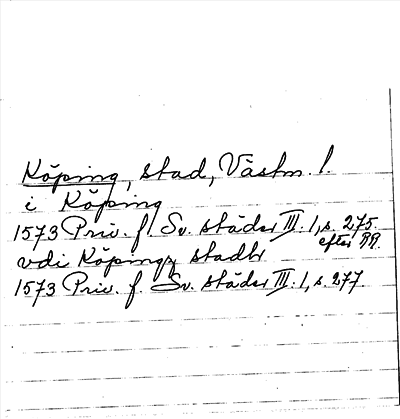 Köping, stad, Västm. l.
i Köping
1573 Priv. f. Sv. städer III. 1, s. 275.
efter RR.
vdi Köping, stadh
1573 Priv. f. Sv. städer III. 1, s. 277.